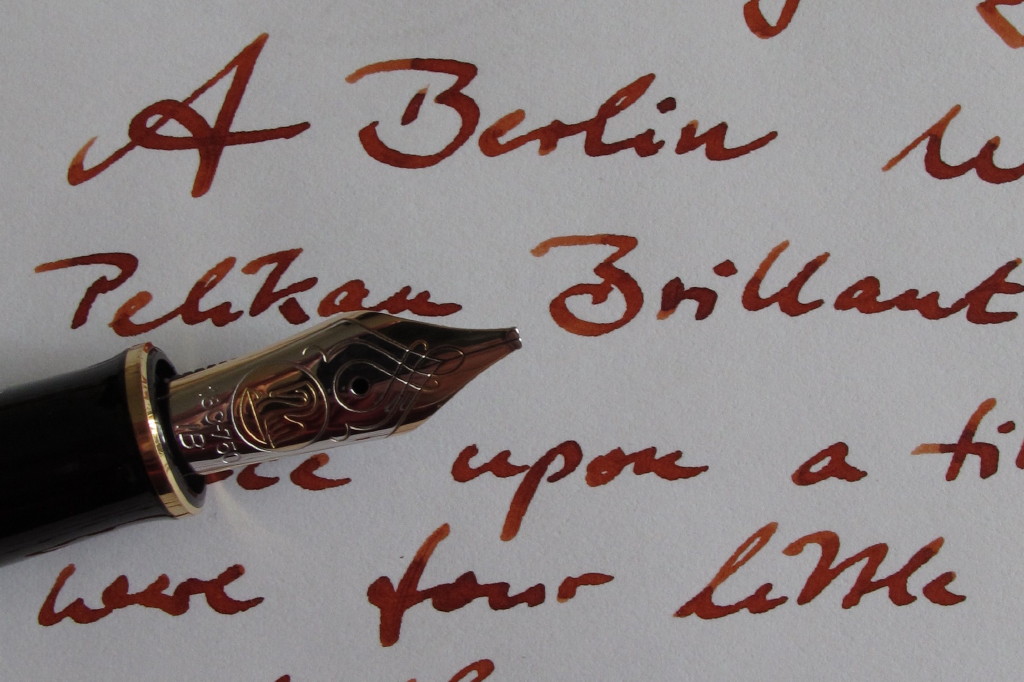 A Berlin
Pelikan Brillant
B
upon a
were four little